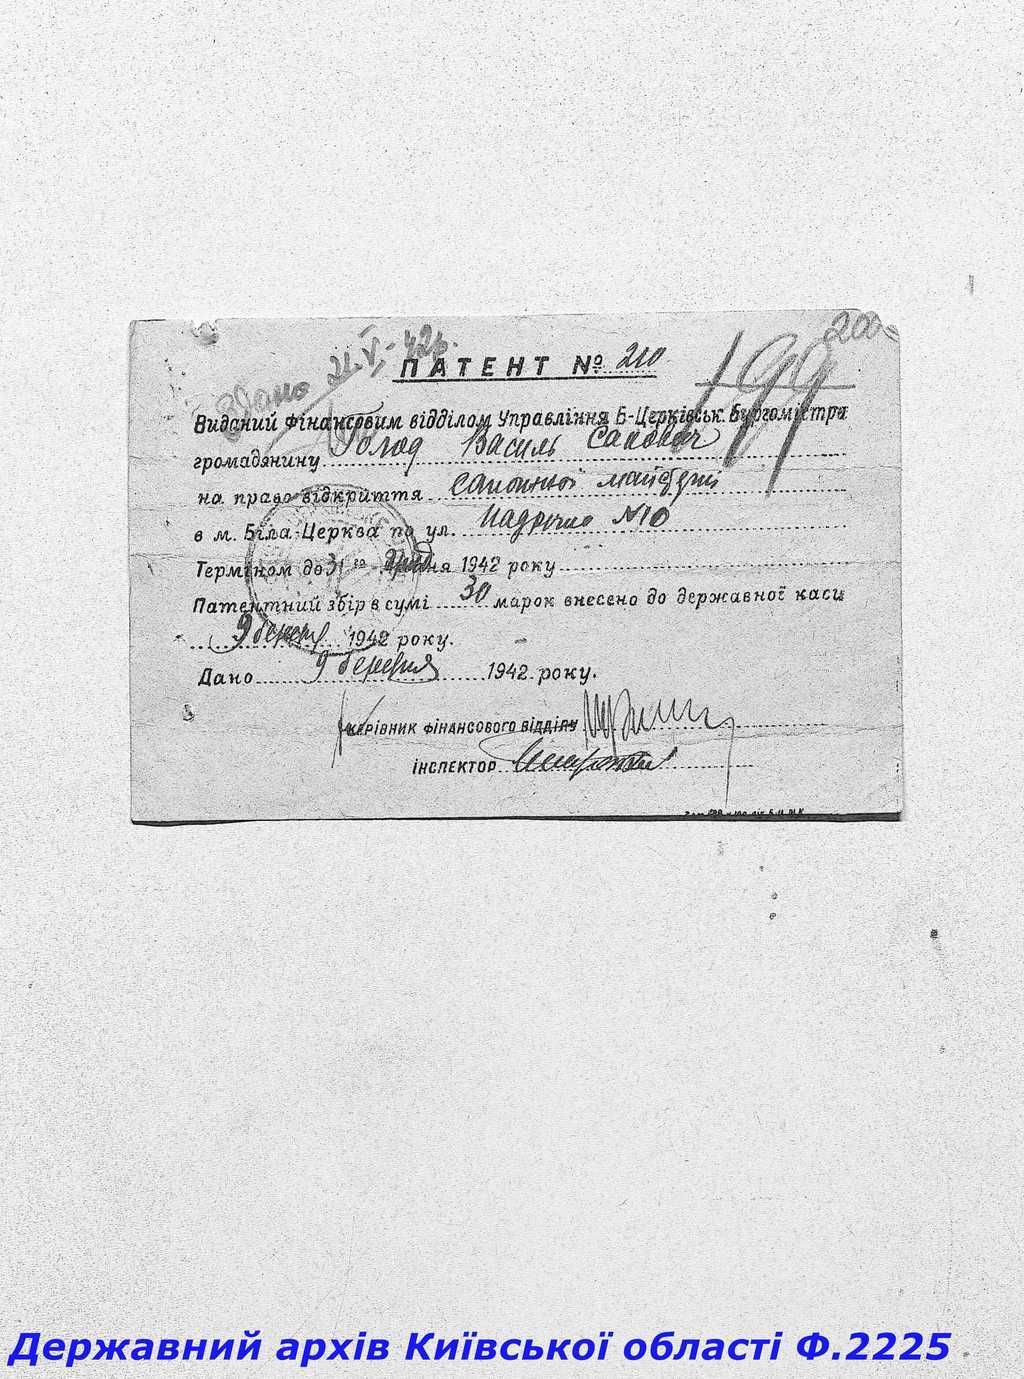 200
Здано 21.V.42р.
199
ПАТЕНТ № 210
Виданий Фінансовим відділом Управління Б-Церківськ. Бургомістра
громадянину Голод Василь
на право відкриття
в м. Біла-Церква по ул. №10
Терміном до 31 го грудня 1942 року
Патентний збір в сумі 30 марок внесено до державної каси
9 березн 1942 року.
Дано 9 березня 1942 року.
КЕРІВНИК ФІНАНСОВОГО ВІДДІЛУ
ІНСПЕКТОР
Державний архів Київської області Ф.2225